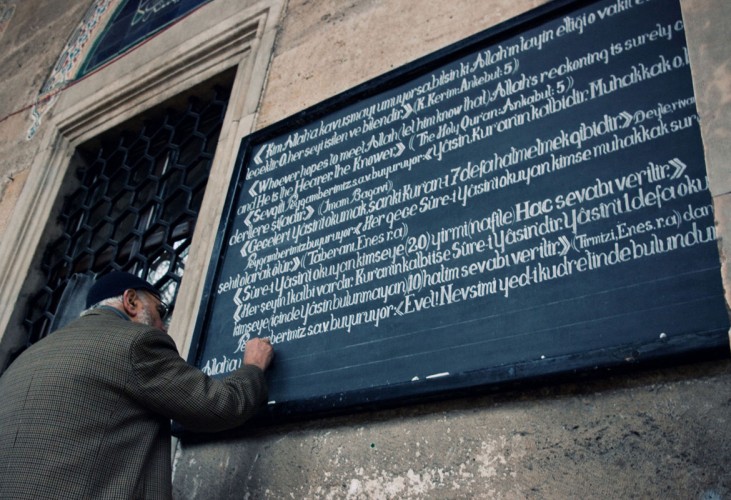 《Kim Allah'a kavuşmayı umuyorsa, bilsin ki Allah'ın tayin ettiği o vakit
lecektir. O her şeyi işiten ve bilendir.》 (K. Kerim: Ankebut: 5)
《Whoever hopes to meet Allah (let him know that) Allah's reckoning is surely
and He is the Hearer, the Knower.》 (The Holy Qur'an: Ankabut: 5)
《Sevgili Peygamberimiz s.a.v. buyuruyor: 《Yâsin, Kur'an'ın kalbidir. Muhakkak
derilere şifadır.》 (İmam Begavi)
《Geceleri Yâsin'i okumak sanki Kur'an-ı 7 defa hatmetmek gibidir.》
Peygamberimiz buyuruyor: 《Her gece Sûre-i Yâsin'i okuyan kimse muhakkak
şehit olarak ölür.》 (Taberan: Enes r.a)
《Sûre-i Yâsin'i okuyan kimseye (20) yirmi (nafile) Hac sevabı verilir.》
《Her şeyin 1 kalbi vardır. Kur'an'ın kalbi ise Sûre-i Yâsin'dir. Yâsin'i 1 defa
kimseye içinde Yâsin bulunmayan (10) hatim sevabı verilir.》 (Tirmizi, Enes. r.a)
Peygamberimiz s.a.v. buyuruyor: 《Evet! Nefsimi yed-i kudretinde
Allah'a